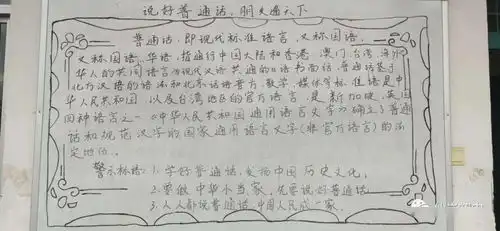 说好普通话,朋友遍天下
普通话,即现代标准语言,又称国语,
又称国语、华语,指通行中国大陆和香港 澳门,台湾,海外
华人的共同语言为现代汉语共通的口语书面结,普通话基于
北方汉语的语法和北京话语音方,教学,媒体等标准语是中
华人民共和国,以及台湾地区的官方语言,是新加坡,英国
四种语言之一《中华人民共和国通用语言文字》确立了普通
话和规范汉字的国家通用语言文字(非官方语言)的法
定地位。
警示标语:1.学好普通话,发扬中国历史文化,
2.要做中华小当家,先要说好普通话
3.人人都说普通话,中国人民成一家,